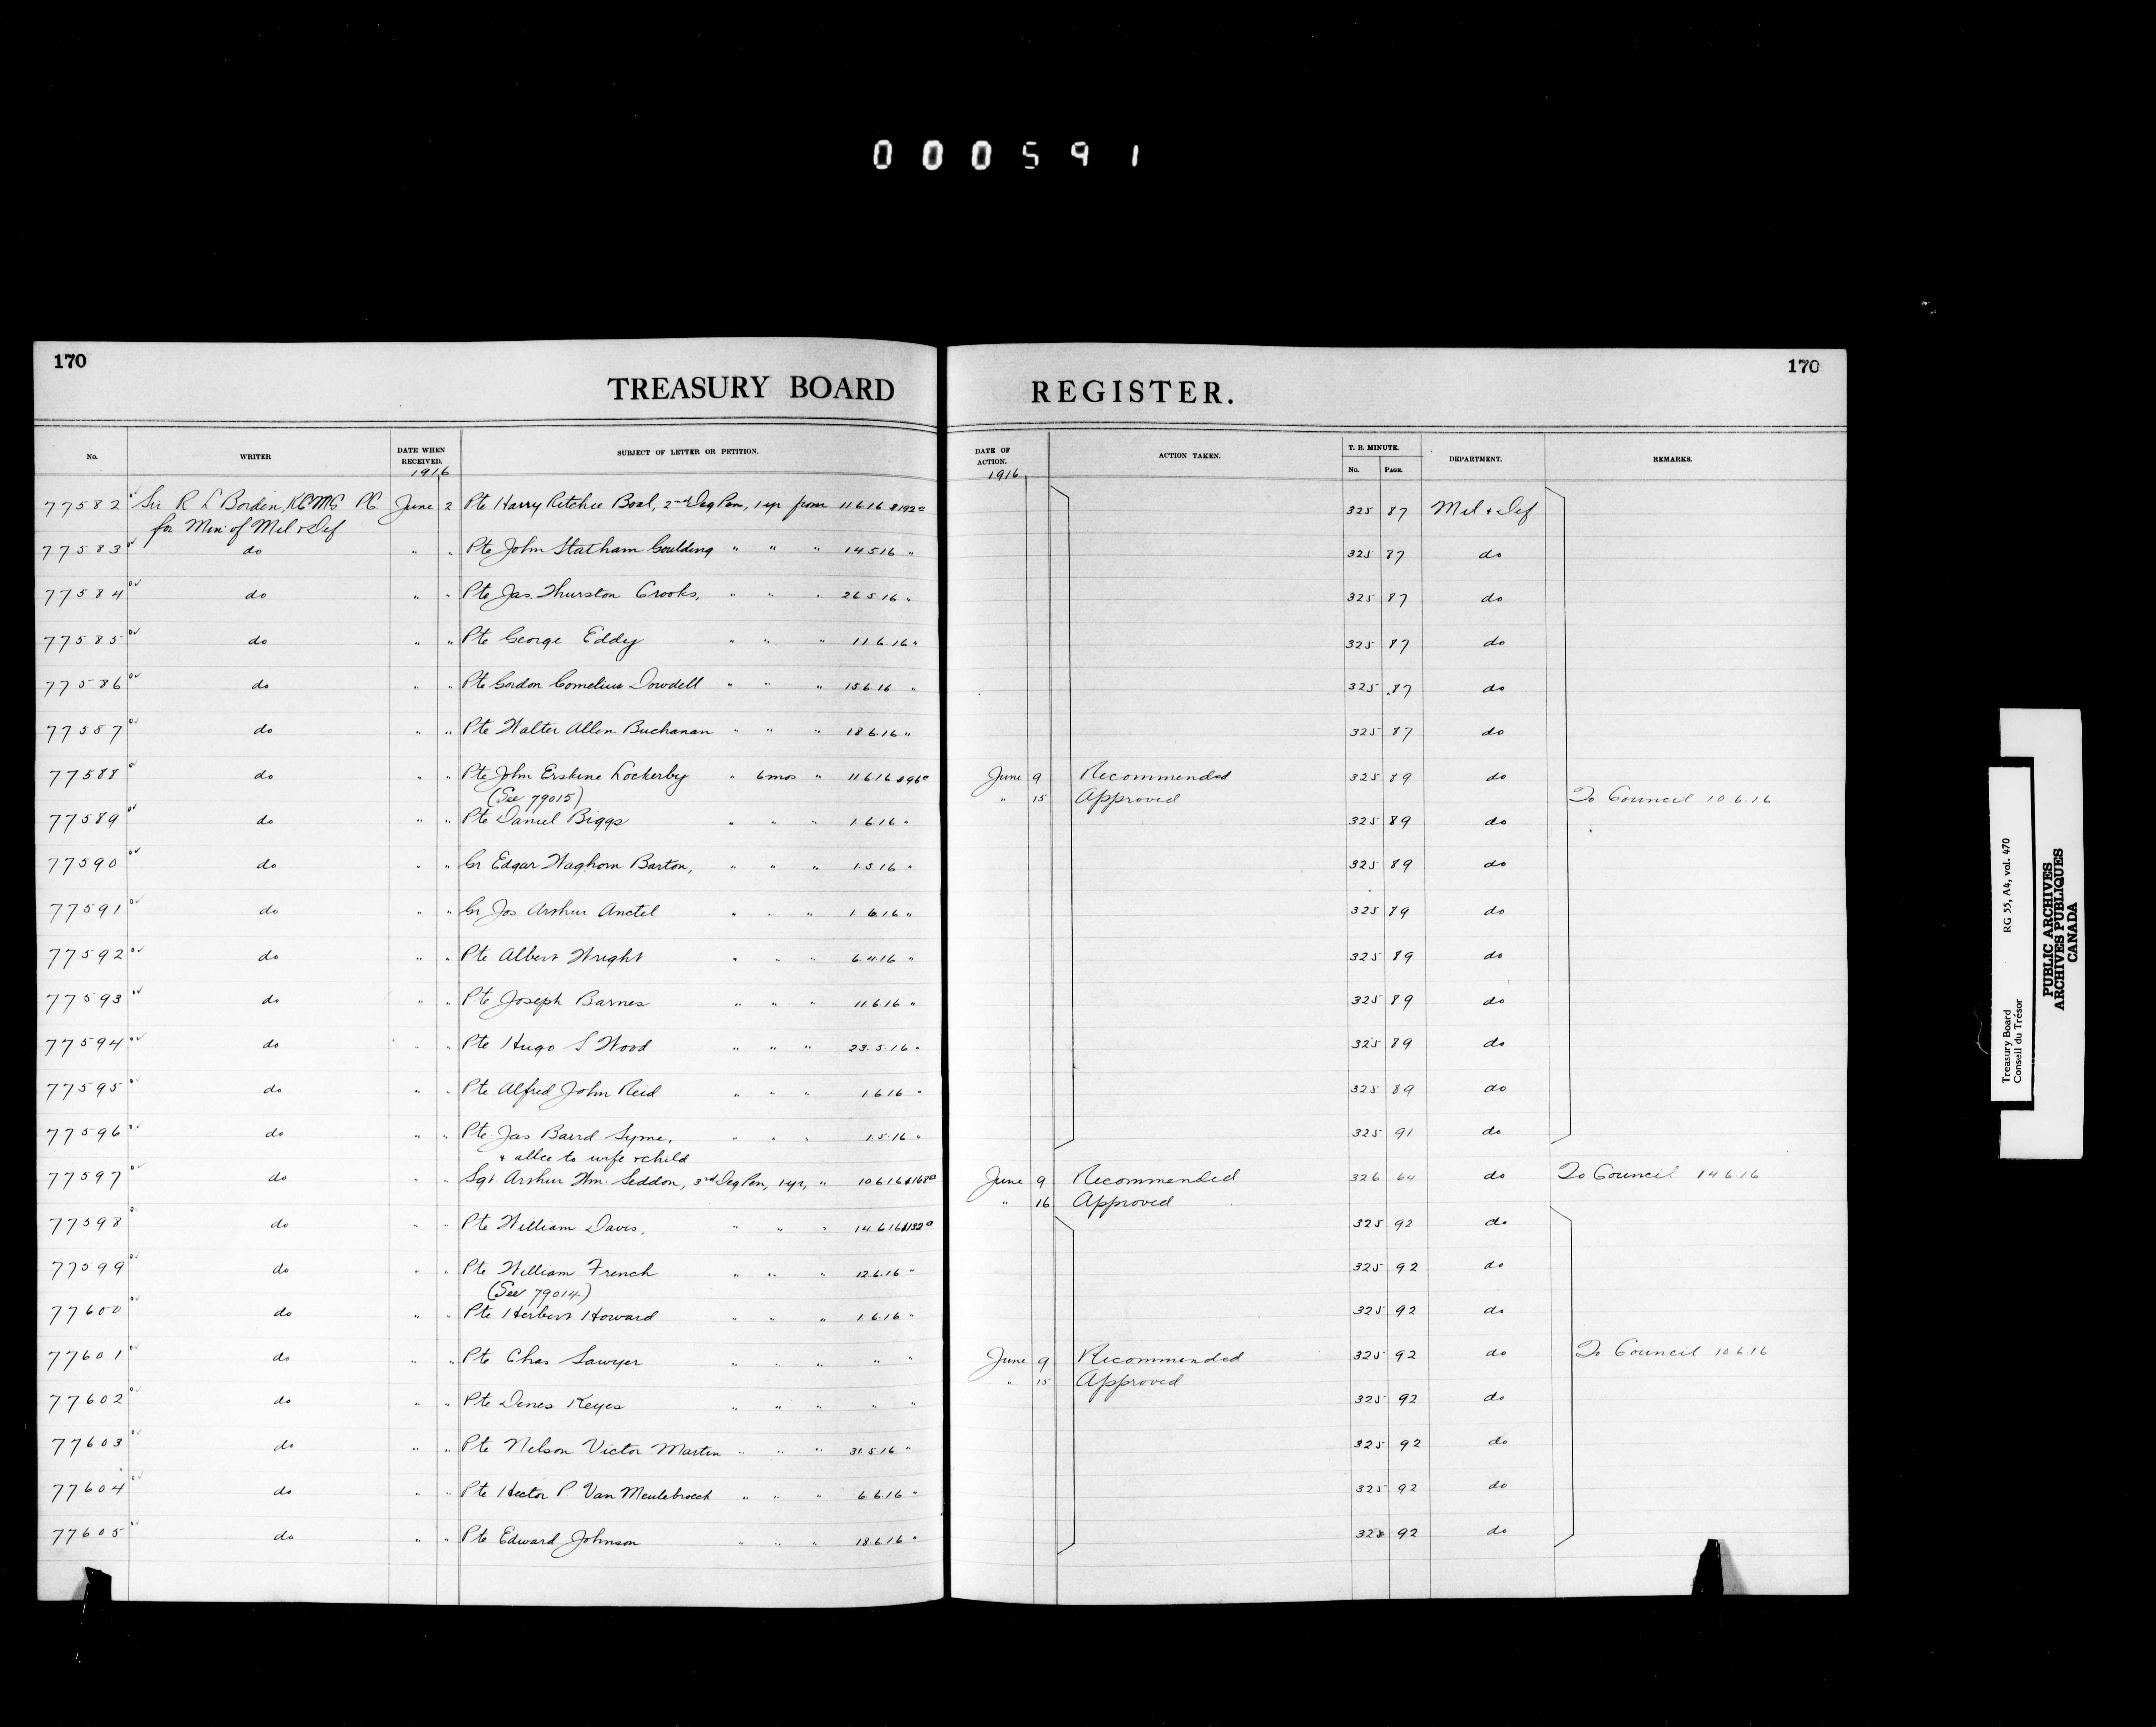 000591
170
170
TREASURY BOARD REGISTER.
No. WRITER DATE WHEN RECEIVED. SUBJECT OF LETTER OR PETITION. DATE OF ACTION. ACTION TAKEN. T. B. MINUTE. No. PAGE. DEPARTMENT. REMARKS.
1916 1916
77582 Sir R L Borden, KCMG PC June 2 Pte Harry Ritchie Boal, 2nd Deg Pen, 1 yr from 11.6.16 $192 325 87 Mil & Def
for Min of Mil & Def
77583 do " " Pte John Statham Goulding " " " 14.5.16 " 325 87 do
77584 do " " Pte Jas. Thurston Crooks, " " " 26.5.16 " 325 87 do
77585 do " " Pte George Eddy " " " 11.6.16 " 325 87 do
77586 do " " Pte Gordon Cornelius Dowdell " " " 15.6.16 " 325 87 do
77587 do " " Pte Walter Allen Buchanan " " " 18.6.16 " 325 87 do
77588 do " " Pte John Erskine Lockerby " 6 mos " 11.6.16 $96 June 9 Recommended 325 89 do
(See 79015) " 15 Approved To Council 10.6.16
77589 do " " Pte Daniel Biggs " " " 1.6.16 " 325 89 do
77590 do " " Gr Edgar Waghorn Barton, " " " 1.5.16 " 325 89 do
77591 do " " Gr Jos Arthur Anctel " " " 1.6.16 " 325 89 do
77592 do " " Pte Albert Wright " " " 6.4.16 " 325 89 do
77593 do " " Pte Joseph Barnes " " " 11.6.16 " 325 89 do
77594 do " " Pte Hugo S Wood " " " 23.5.16 " 325 89 do
77595 do " " Pte Alfred John Reid " " " 1.6.16 " 325 89 do
77596 do " " Pte Jas Barrd Syme, " " " 1.5.16 " 325 91 do
& allce to wife & child
77597 do " " Sgt Arthur Wm. Seddon, 3rd Deg Pen, 1 yr, " 10.6.16 $168 June 9 Recommended 326 64 do To Council 14.6.16
" 16 Approved
77598 do " " Pte William Davis, " " " 14.6.16 $132 325 92 do
77599 do " " Pte William French " " " 12.6.16 " 325 92 do
(See 79014)
77600 do " " Pte Herbert Howard " " " 1.6.16 " 325 92 do
77601 do " " Pte Chas Sawyer " " " " " June 9 Recommended 325 92 do To Council 10.6.16
" 15 Approved
77602 do " " Pte Denes Keyes " " " " " 325 92 do
77603 do " " Pte Nelson Victor Martin " " " 31.5.16 " 325 92 do
77604 do " " Pte Hector P. Van Meulebroech " " " 6.6.16 " 325 92 do
77605 do " " Pte Edward Johnson " " " 18.6.16 " 325 92 do
Treasury Board RG 55, A4, vol. 470
Conseil du Trésor
PUBLIC ARCHIVES
ARCHIVES PUBLIQUES
CANADA